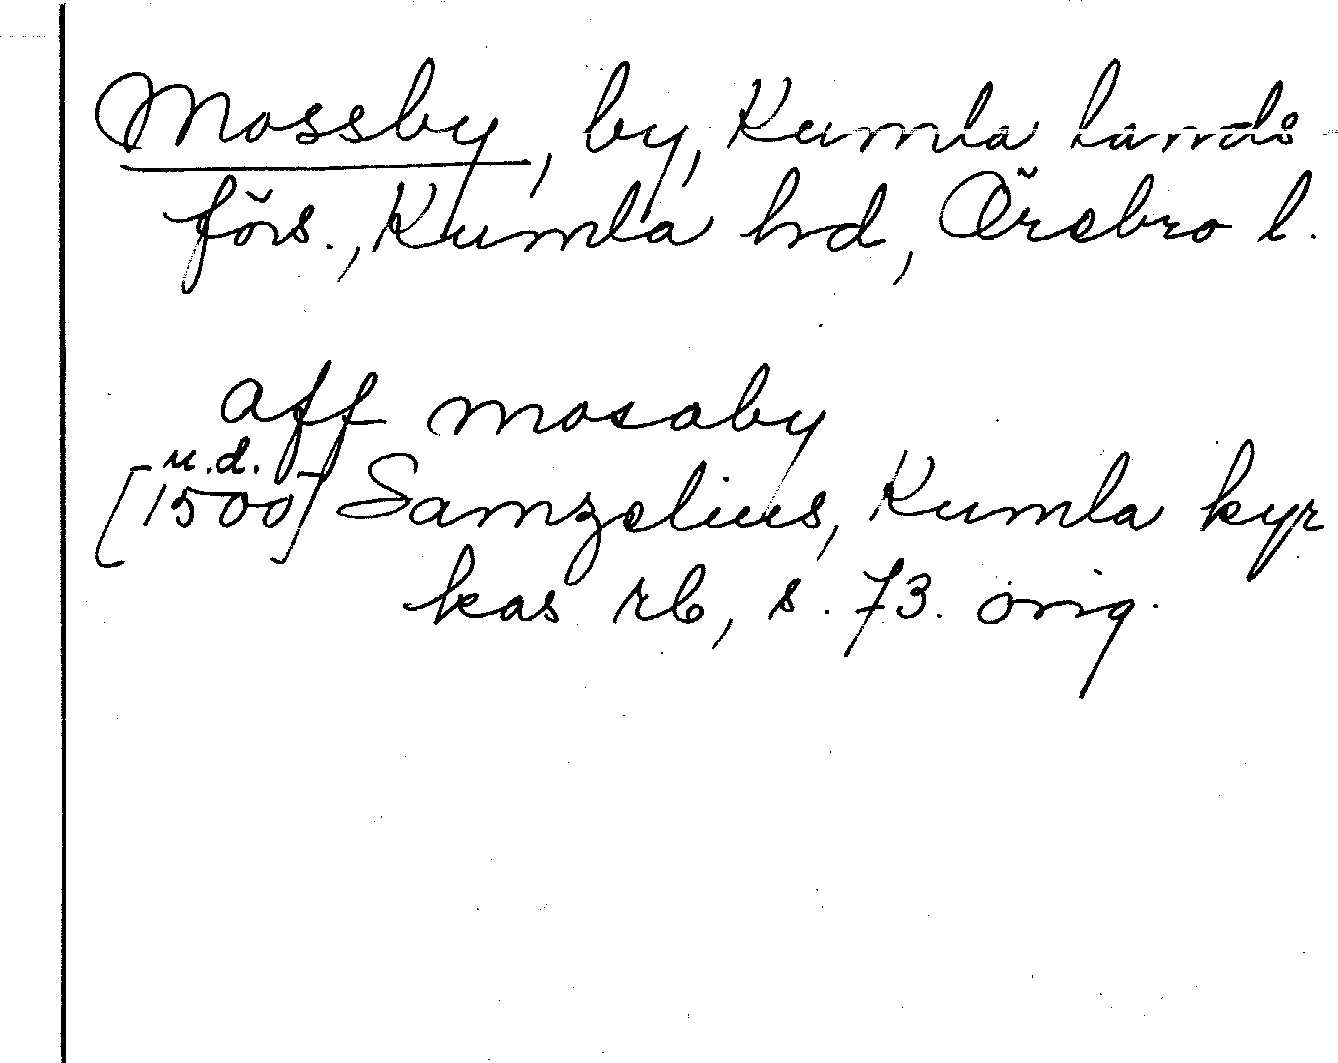 Mossby, by, Kumla lands-
förs., Kumla hd, Örebro l.
aff mosaby
u.d.
[1500] Samzelius, Kumla kyr
kas rb, s. 73. orig.